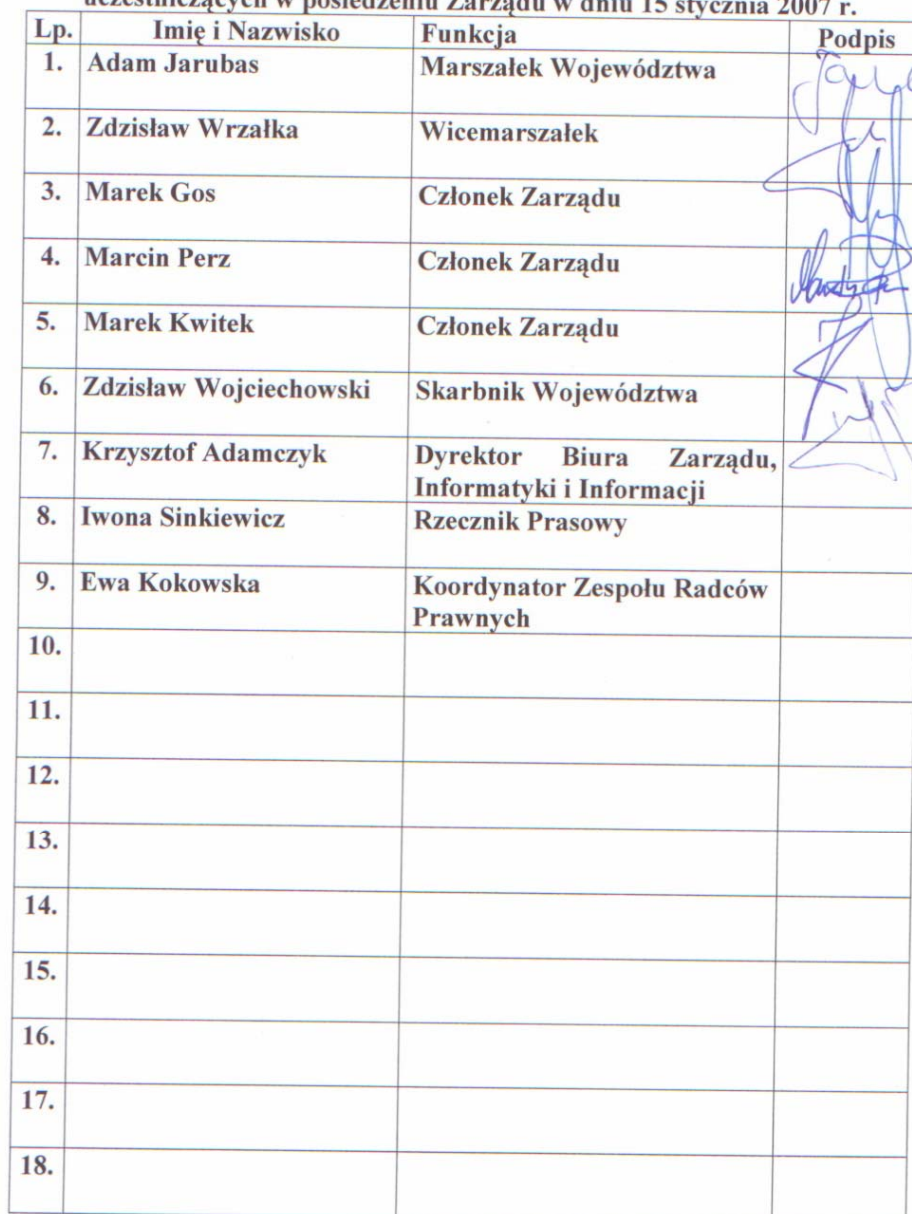 uczestniczących w posiedzeniu Zarządu w dniu 15 stycznia 2007 r.
Lp. Imię i Nazwisko Funkcja Podpis
1. Adam Jarubas Marszałek Województwa
2. Zdzisław Wrzałka Wicemarszałek
3. Marek Gos Członek Zarządu
4. Marcin Perz Członek Zarządu
5. Marek Kwitek Członek Zarządu
6. Zdzisław Wojciechowski Skarbnik Województwa
7. Krzysztof Adamczyk Dyrektor Biura Zarządu,
Informatyki i Informacji
8. Iwona Sinkiewicz Rzecznik Prasowy
9. Ewa Kokowska Koordynator Zespołu Radców
Prawnych
10.
11.
12.
13.
14.
15.
16.
17.
18.